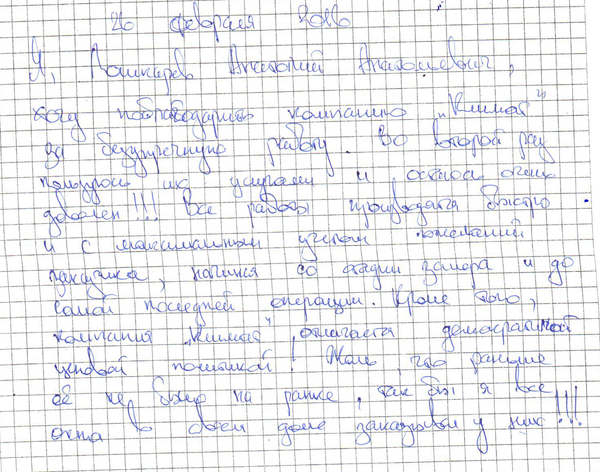 26 февраля 2016
Я, Лошкарев Анатолий Анатольевич,
хочу поблагодарить компанию „Климат"
за безупречную работу. Во второй раз
пользуюсь их услугами и остаюсь очень
доволен!!! Все работы производятся быстро
и с максимальным учетом пожеланий
заказчика, начиная со стадии замера и до
самой последней операции. Кроме того,
компания „Климат" отличается демократичной
ценовой политикой! Жаль, что раньше
её не было на рынке, так бы я все
окна в своем доме заказывал у них!!!